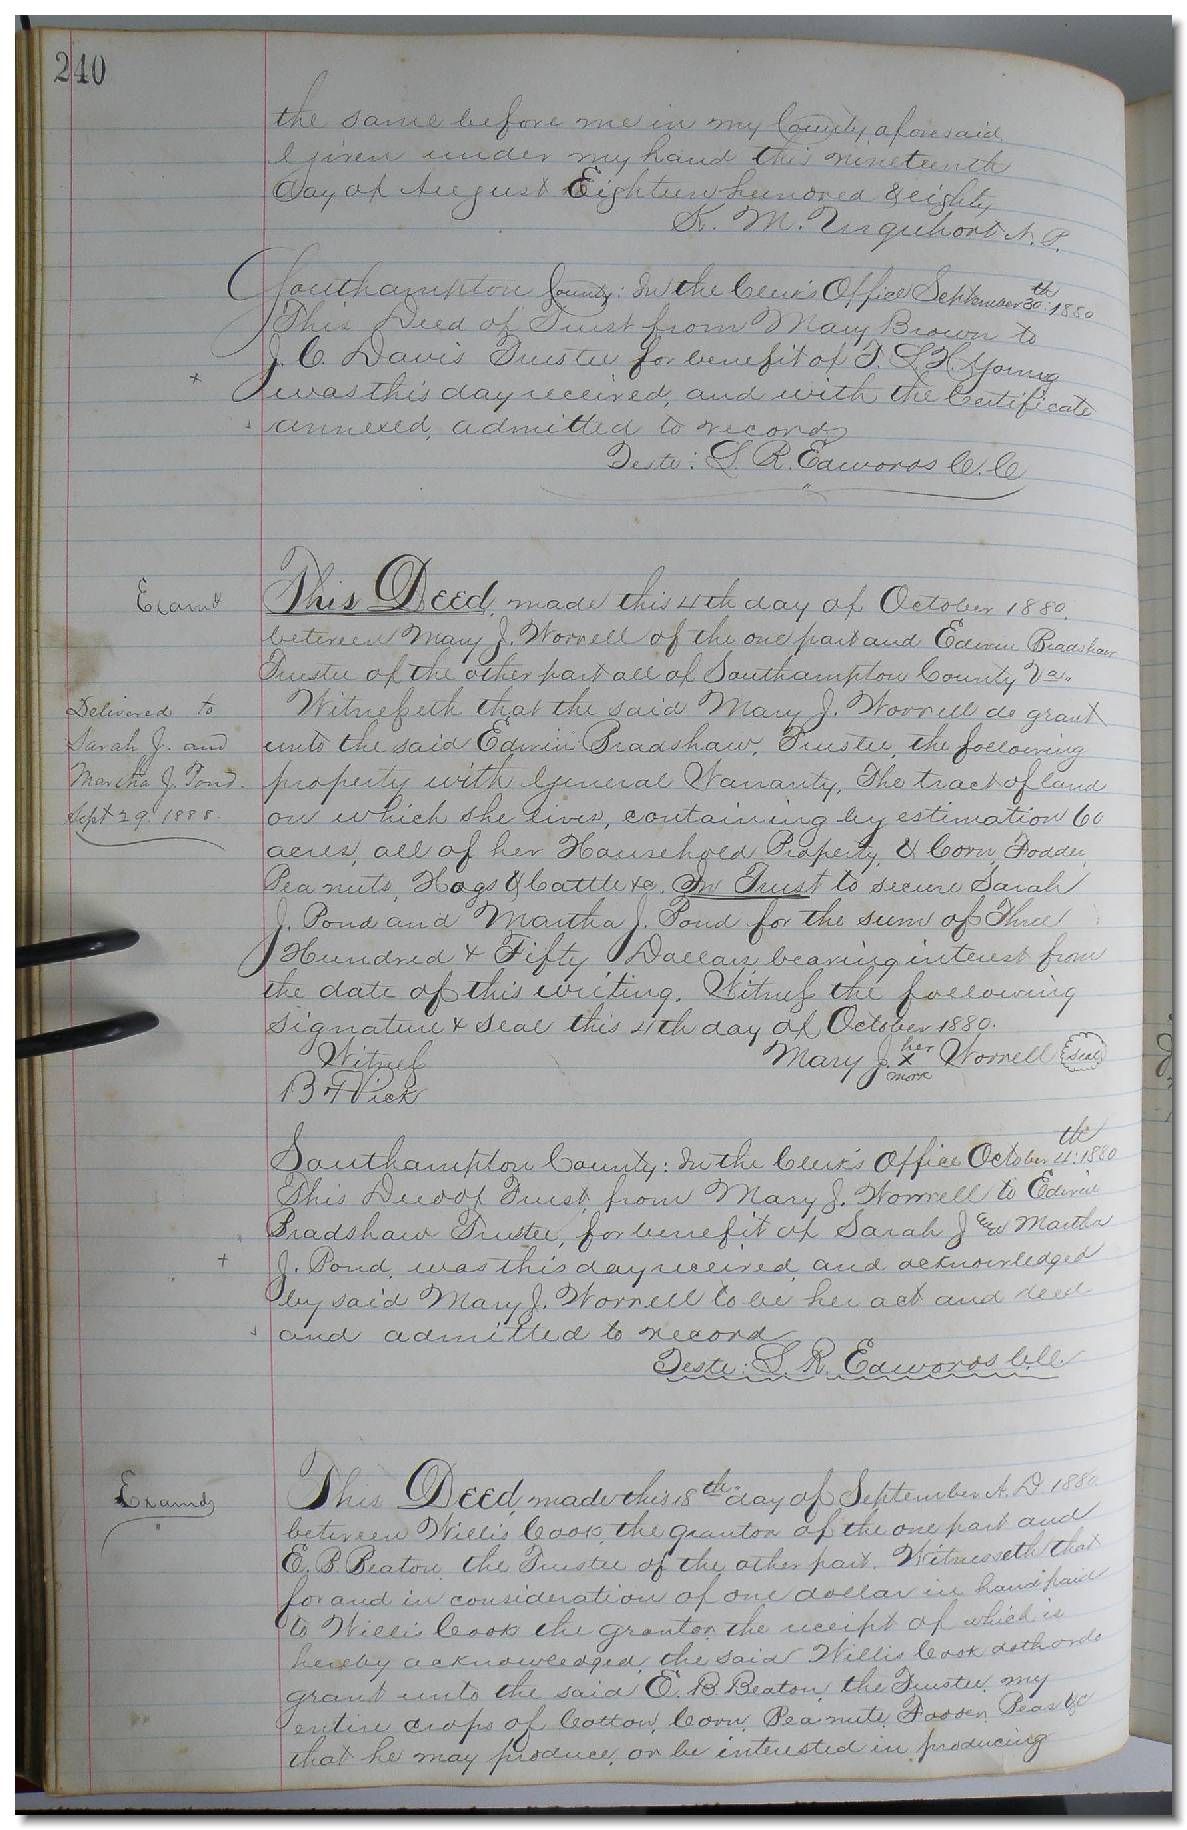 240
the same before me in my County aforesaid
Given under my hand this nineteenth
day of August Eighteen hundred & eighty
K. M. Urquhart N. P.
Southampton County: In the Clerk's Office September 30th: 1880
This Deed of Trust from Mary Brown to
J. C. Davis Trustee for benefit of T. L. H. Young
was this day received, and with the Certificate
annexed, admitted to record
Teste: L. R. Edwards C. C
Examd
This Deed, made this 4th day of October 1880.
between Mary J. Worrell of the one part and Edwin Bradshaw
Trustee of the other part all of Southampton County Va.
Delivered to
Sarah J. and
Martha J. Pond.
Sept 29th 1888.
Witnesseth that the said Mary J. Worrell do grant
unto the said Edwin Bradshaw, Trustee, the following
property with General Warranty, The tract of land
on which she lives, containing by estimation 60
acres, all of her Household Property, & Corn, Fodder,
Pea nuts, Hogs & Cattle &c. In Trust to secure Sarah
J. Pond and Martha J. Pond for the sum of Three
Hundred & Fifty Dollars bearing interest from
the date of this writing. Witness the following
signature & seal this 4th day of October 1880.
Witness
Mary J. her X mark Worrell Seal
B F Vick
Southampton County: In the Clerk's Office October 4th: 1880
This Deed of Trust, from Mary J. Worrell to Edwin
Bradshaw Trustee, for benefit of Sarah J and Martha
J. Pond, was this day received, and acknowledged
by said Mary J. Worrell to be her act and deed
and admitted to record
Teste: L. R. Edwards C.C.
Examd
This Deed, made this 18th day of September A. D. 1880.
between Willis Cook, the grantor of the one part and
E. B. Beaton, the Trustee of the other part. Witnesseth that
for and in consideration of one dollar in hand paid
to Willis Cook the grantor, the receipt of which is
hereby acknowledged, the said Willis Cook doth
grant unto the said E. B. Beaton, the Trustee, my
entire crops of Cotton, Corn, Pea nuts, Fodder, Peas &c
that he may produce, or be interested in producing